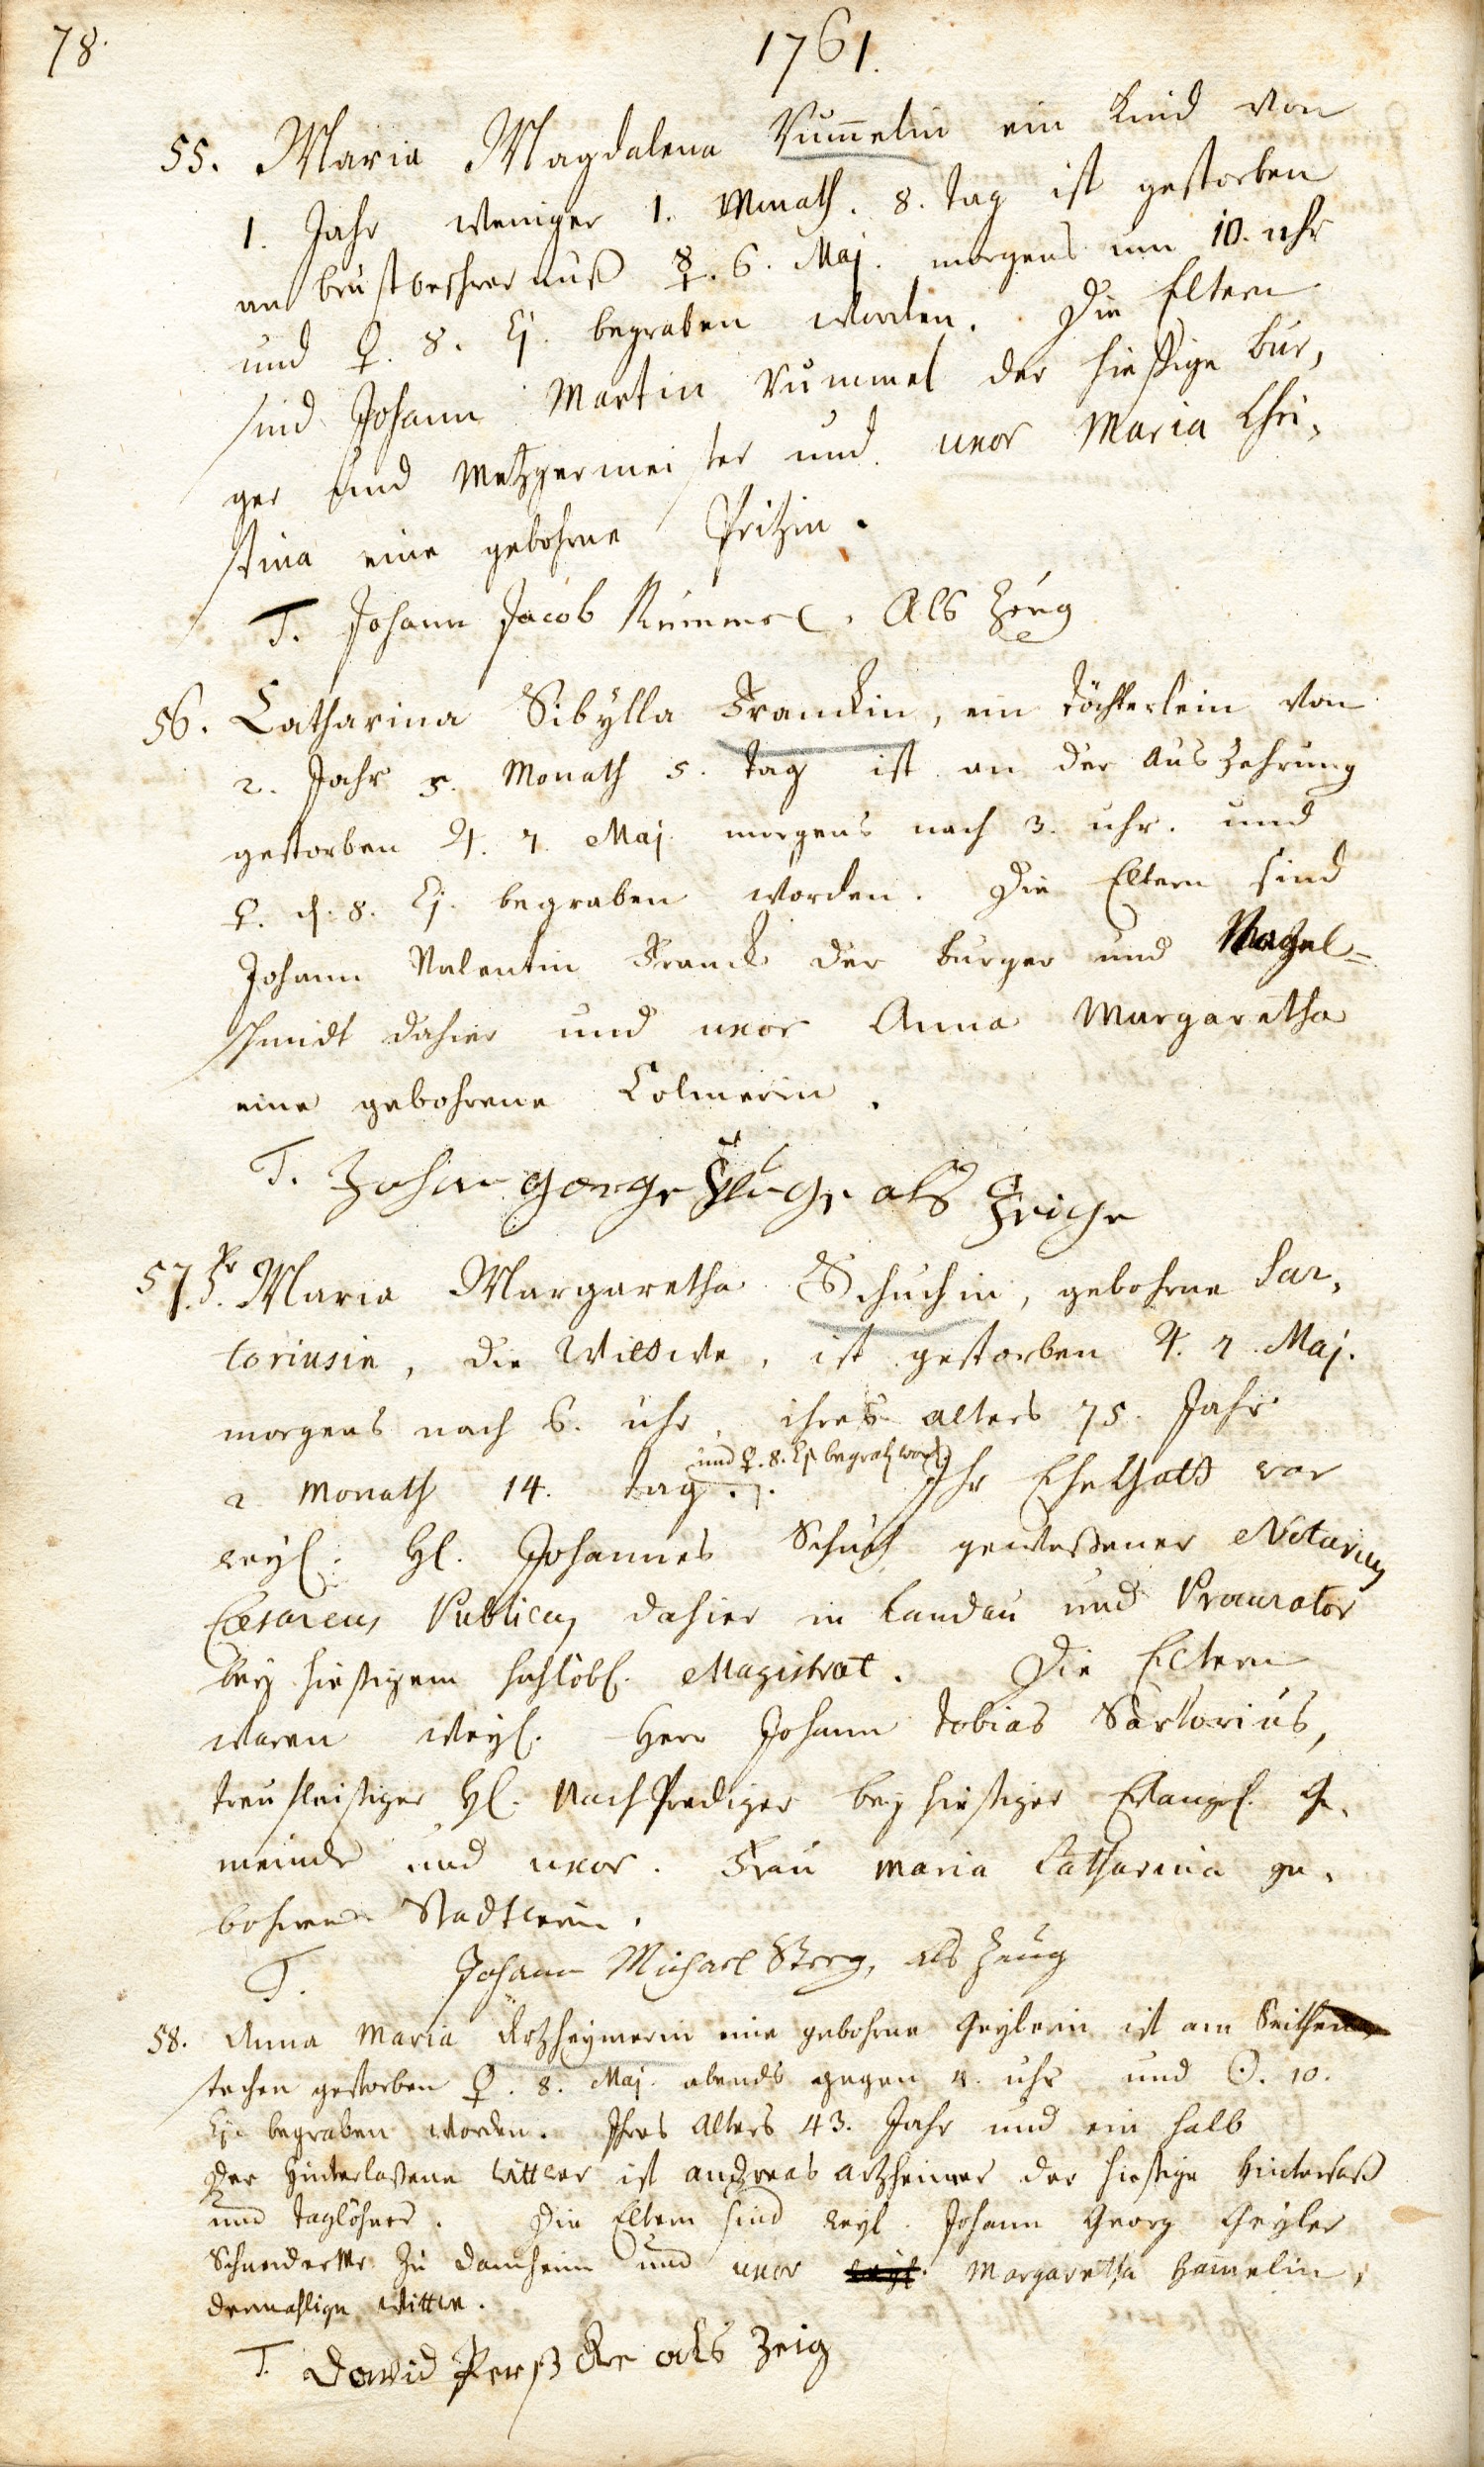 78.
1761.
55. Maria Magdalena Rum̅elin ein Kind von
1. Jahr weniger 1. Monath. 8. tag ist gestorben
an brustbeschwernuß ☿. 6. Maj. morgens um 10. uhr
und ♀. 8. Ej. begraben worden. Die Eltern
sind Johann Martin Rummel der hießige Bur,
ger und Metzgermeister und uxor Maria Chri,
stina eine gebohrne Pritzin.
T. Johann Jacob Rümmel, Als Zeug
56. Catharina Sibÿlla Franckin, ein töchterlein von
2. Jahr 5. Monath 5. tag ist an der auszehrung
gestorben ♃. 7. Maj. morgens nach 3. uhr. und
♀. d. 8. Ej. begraben worden. Die Eltern sind
Johann Valentin Franck der burger und Nagel=
schmidt dahier und uxor Anna Margaretha
eine gebohrene Colmerin.
T. Johan gorge als Zeige
57. Fr. Maria Margaretha Schuchin, gebohrne Sar,
toriusin, die Wittwe, ist gestorben ♃. 7. Maj.
morgens nach 6. uhr, ihres alters 75. Jahr
und ♀. 8. Ej. begrab. word.
2 Monath 14. tag. Ihr EheGatt war
weyl. H. Johannes Schuch geweßener Notarius
Cæsareus Publicus dahier in Landau und Procurator
bey hießigem hochlöbl. Magistrat. Die Eltern
waren weyl. Herr Johann Tobias Sartorius,
treufleißiger H. NachPrediger bey hießiger Evangel. Ge,
meinde und uxor. Frau Maria Catharina ge,
bohrne Stadtlerin.
T. Johann Michael Berg, als Zeug
58. Anna Maria Artzheymerin eine gebohrne Geylerin ist am Seithen
stechen gestorben ♀. 8. Maj. abends gegen 4. uhr und ☉. 10.
Ej. begraben worden. Ihres Alters 43. Jahr und ein halb
Der hinterlaßene Wittwer ist Andreas Artzheimer der hießige hintersaß
und taglöhner. Die Eltern sind weyl. Johann Georg Geyler
Schneider Mr. zu Damheim und uxor Margaretha Ham̅elin,
dermahlige Wittwe.
T. David als Zeig